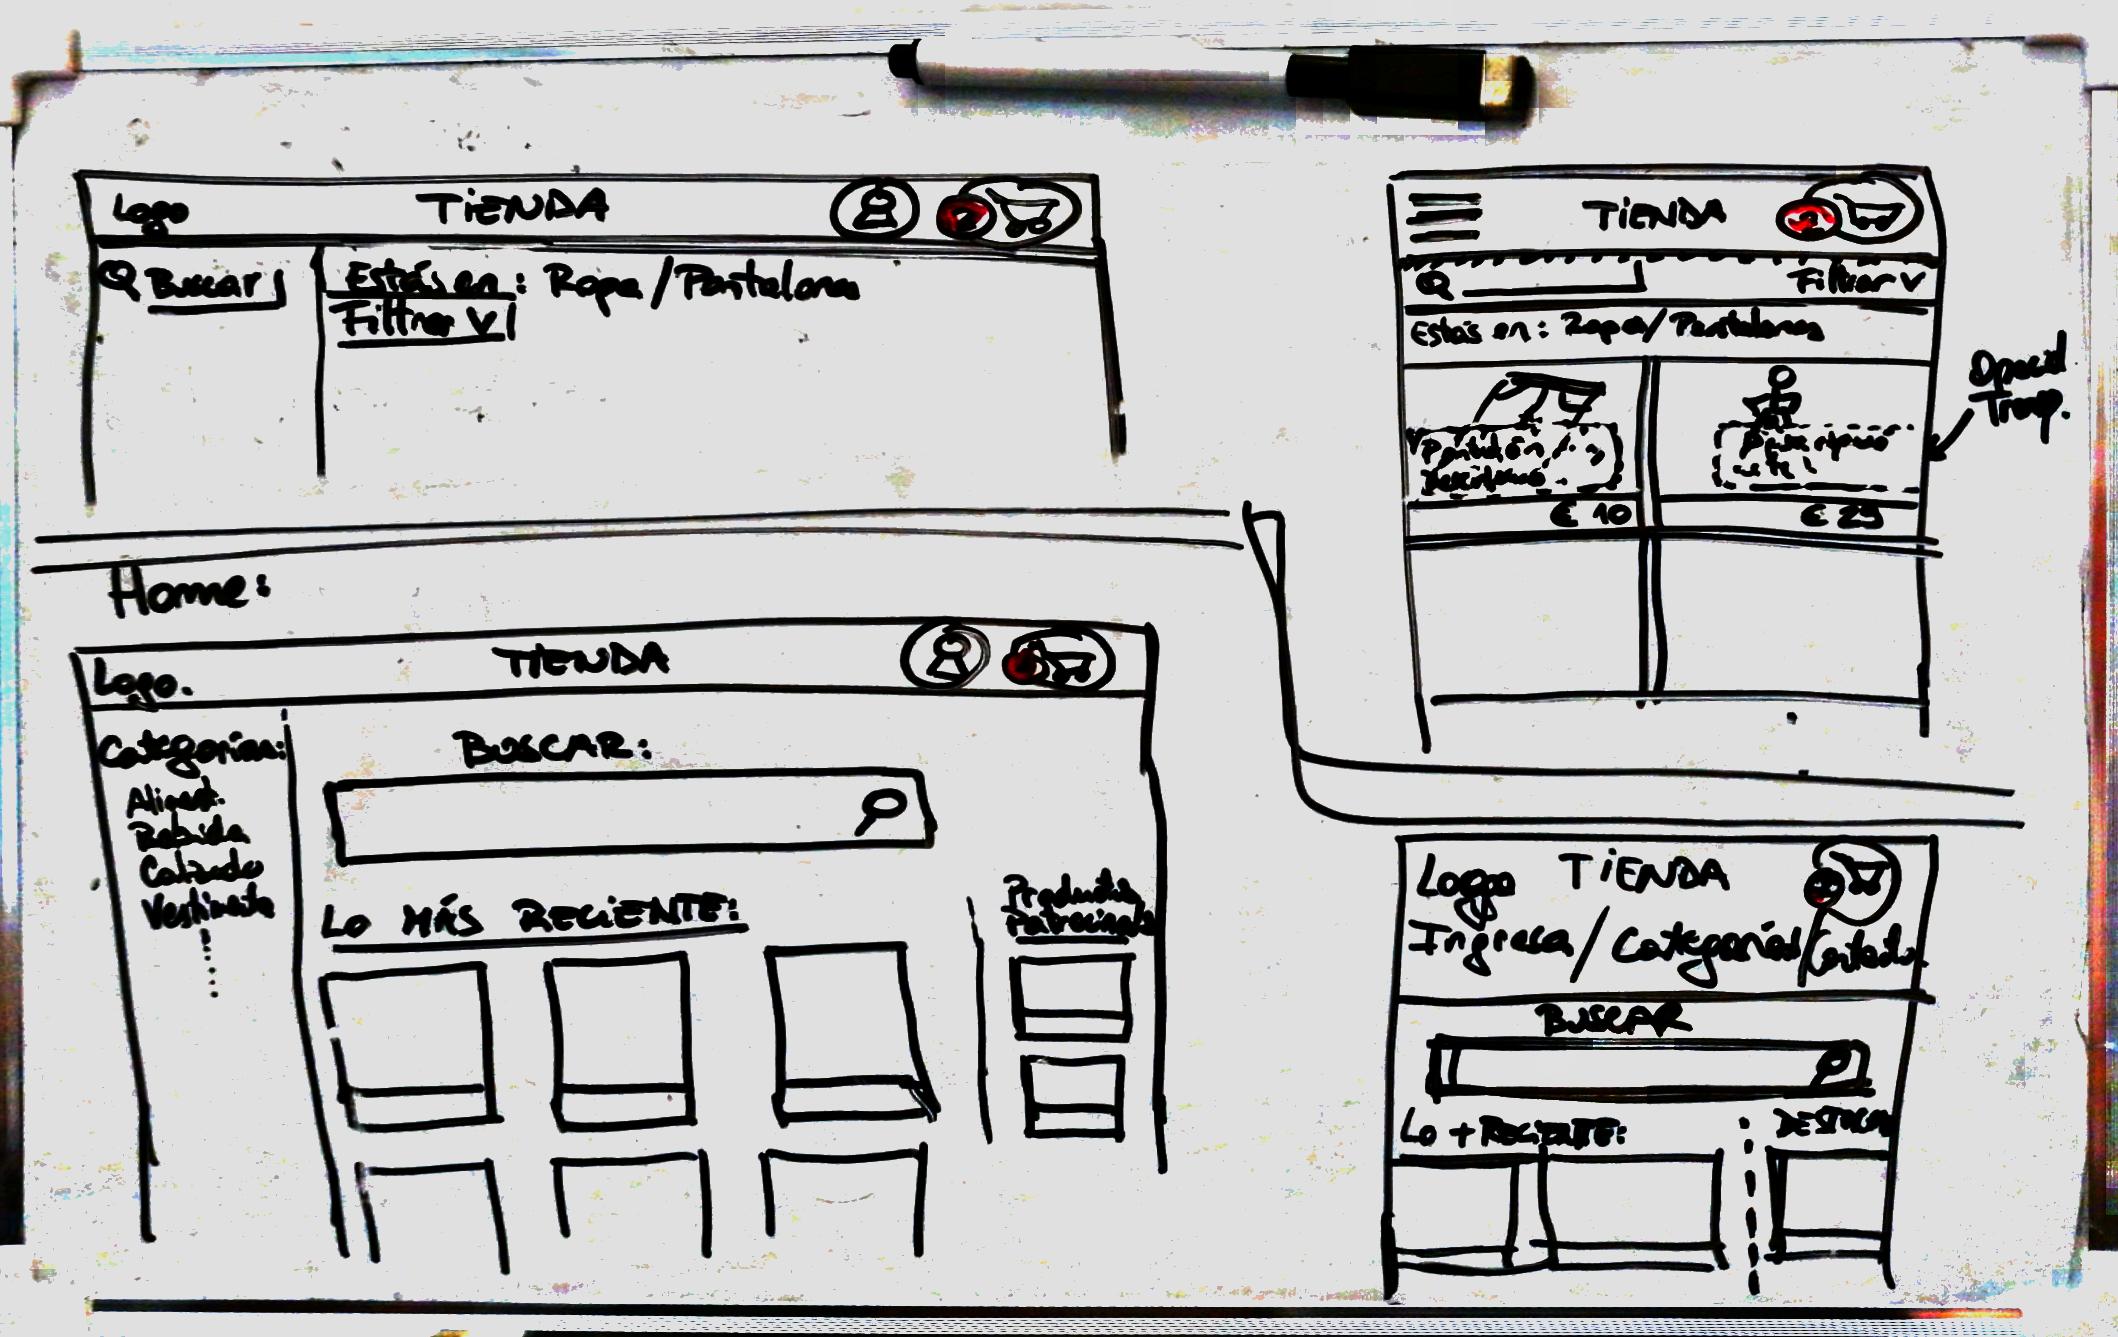 Logo TIENDA
Buscar
Estás en: Ropa/Pantalones
Filtrar V
TIENDA 2
Filtrar V
Estás en: Ropa/Pantalones
Pantalón
€ 10
€ 25
Home:
Logo. TIENDA
Categorías:
Aliment.
Bebida
Calzado
Vestimenta
BUSCAR:
LO MÁS RECIENTE:
Productos
Patrocinado
Logo TIENDA
Ingresa/Categorías/
BUSCAR
Lo + RECIENTE: